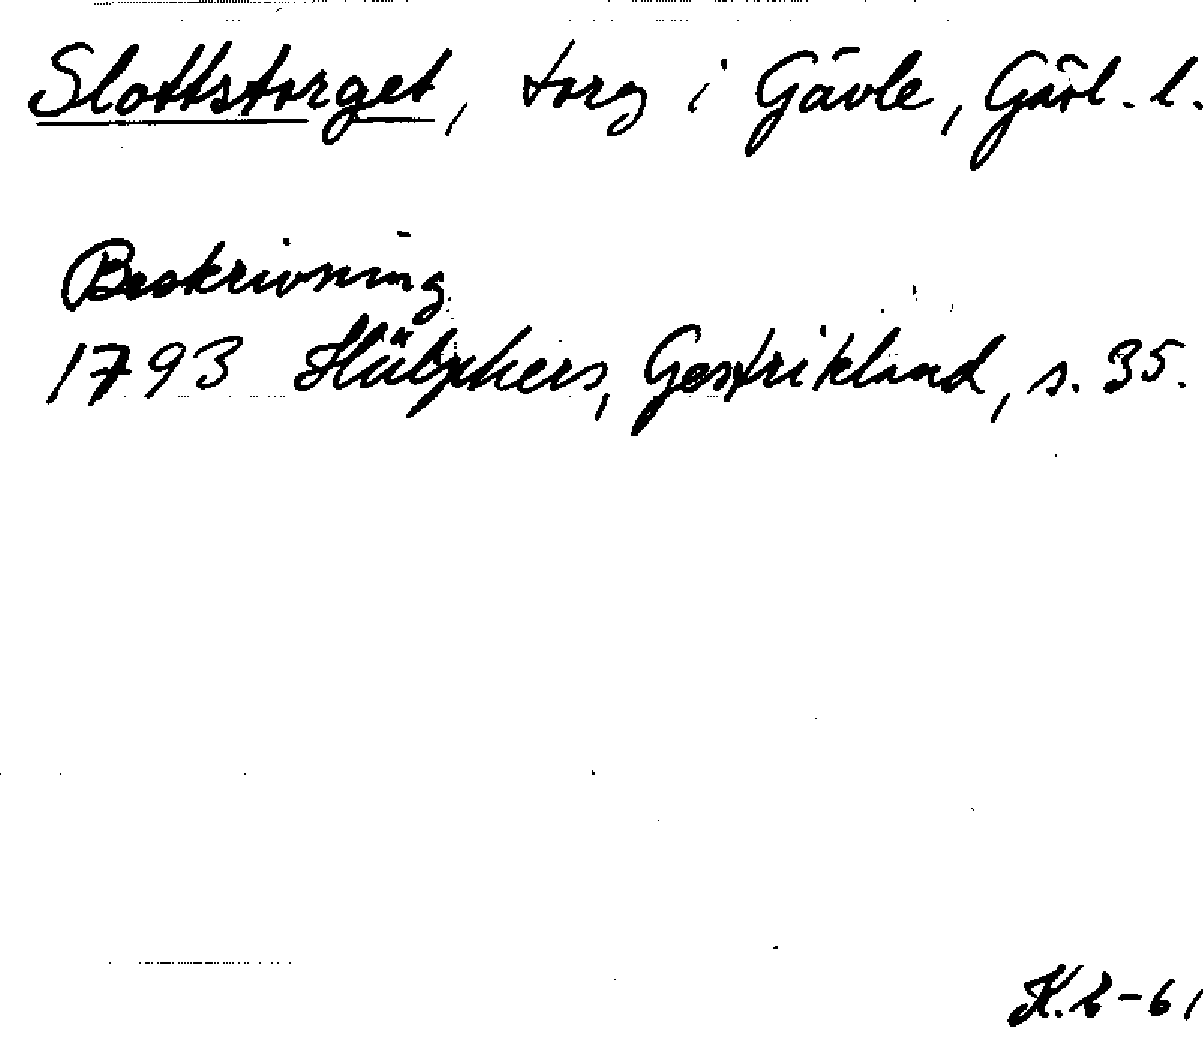 Slottstorget, torg i Gävle, Gävl. l.
Beskrivning
1793 Hülphers, Gestrikland, s. 35.
K. L-61